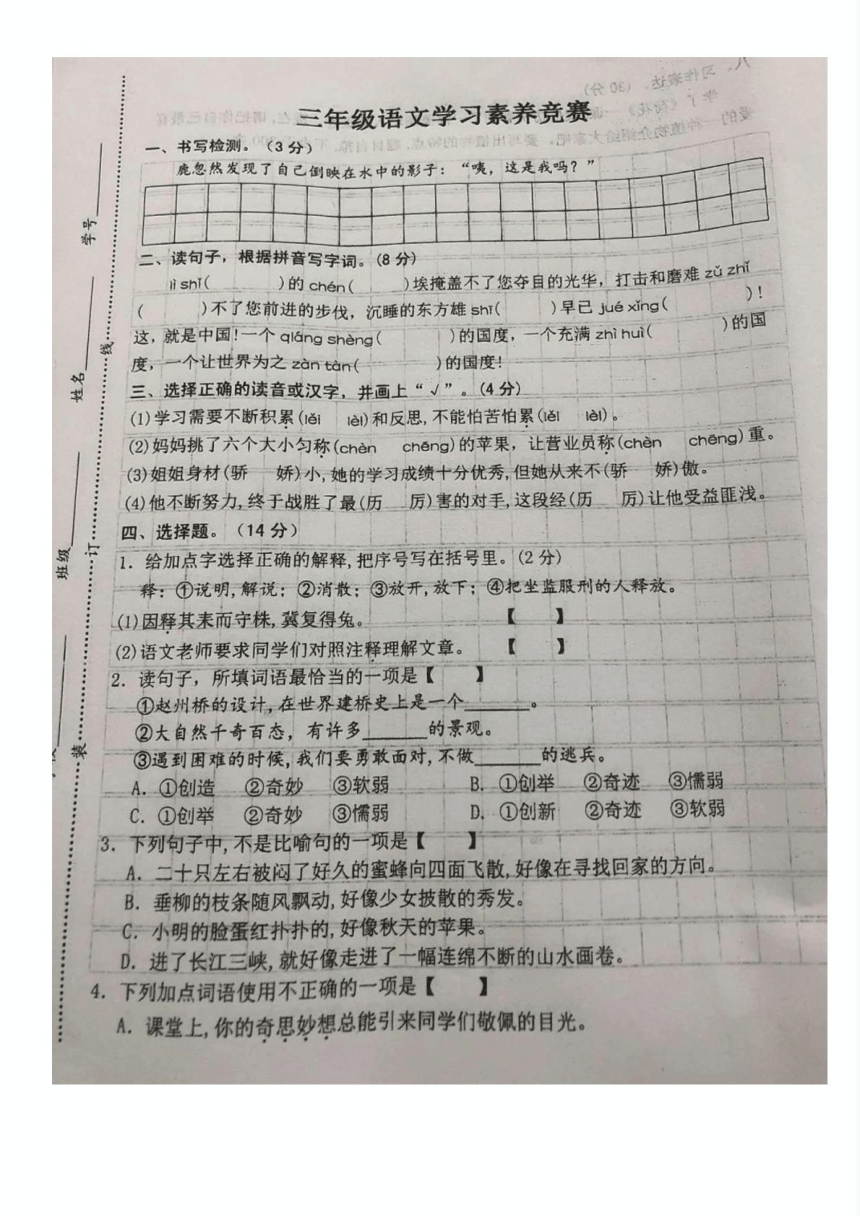 三年级语文学习素养竞赛
一、书写检测。（3分）
鹿忽然发现了自己倒映在水中的影子：“咦，这是我吗？”
二、读句子，根据拼音写字词。(8分)
lì shǐ( )的chén( )埃掩盖不了您夺目的光华，打击和磨难zǔ zhǐ
( )不了您前进的步伐，沉睡的东方雄shī( )早已jué xǐng( )！
这，就是中国！一个qiáng shèng( )的国度，一个充满zhì huì( )的国
度，一个让世界为之zàn tàn( )的国度！
三、选择正确的读音或汉字，并画上“√”。(4分)
(1)学习需要不断积累(lěi lèi)和反思,不能怕苦怕累(lěi lèi)。
(2)妈妈挑了六个大小匀称(chèn chēng)的苹果，让营业员称(chèn chēng)重。
(3)姐姐身材(骄 娇)小,她的学习成绩十分优秀,但她从来不(骄 娇)傲。
(4)他不断努力,终于战胜了最(历 厉)害的对手,这段经(历 厉)让他受益匪浅。
四、选择题。（14分）
1．给加点字选择正确的解释,把序号写在括号里。(2分)
释：①说明,解说；②消散；③放开,放下；④把坐监服刑的人释放。
(1)因释其耒而守株,冀复得兔。 【 】
(2)语文老师要求同学们对照注释理解文章。 【 】
2．读句子，所填词语最恰当的一项是【 】
①赵州桥的设计,在世界建桥史上是一个______。
②大自然千奇百态，有许多______的景观。
③遇到困难的时候,我们要勇敢面对,不做______的逃兵。
A．①创造 ②奇妙 ③软弱 B．①创举 ②奇迹 ③懦弱
C．①创举 ②奇妙 ③懦弱 D．①创新 ②奇迹 ③软弱
3．下列句子中,不是比喻句的一项是【 】
A．二十只左右被闷了好久的蜜蜂向四面飞散,好像在寻找回家的方向。
B．垂柳的枝条随风飘动,好像少女披散的秀发。
C．小明的脸蛋红扑扑的,好像秋天的苹果。
D．进了长江三峡,就好像走进了一幅连绵不断的山水画卷。
4．下列加点词语使用不正确的一项是【 】
A．课堂上,你的奇思妙想总能引来同学们敬佩的目光。
学号
姓名
班级
线
订
装